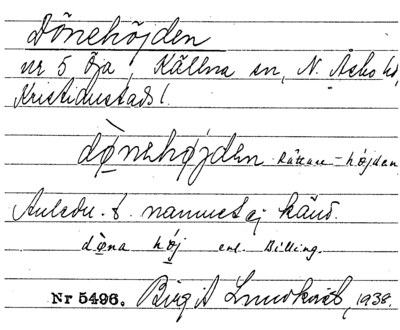 Dönehöjden
nr 5 Öja, Källna sn, N. Åsbo hd,
Kristianstads l.
dø̀nehǿjden rättare -hǿjden
Anledn. t. namnet ej känd.
dø̀na hǿj enl. Billing.
Nr 5496. Birgit Lundkvist, 1938.